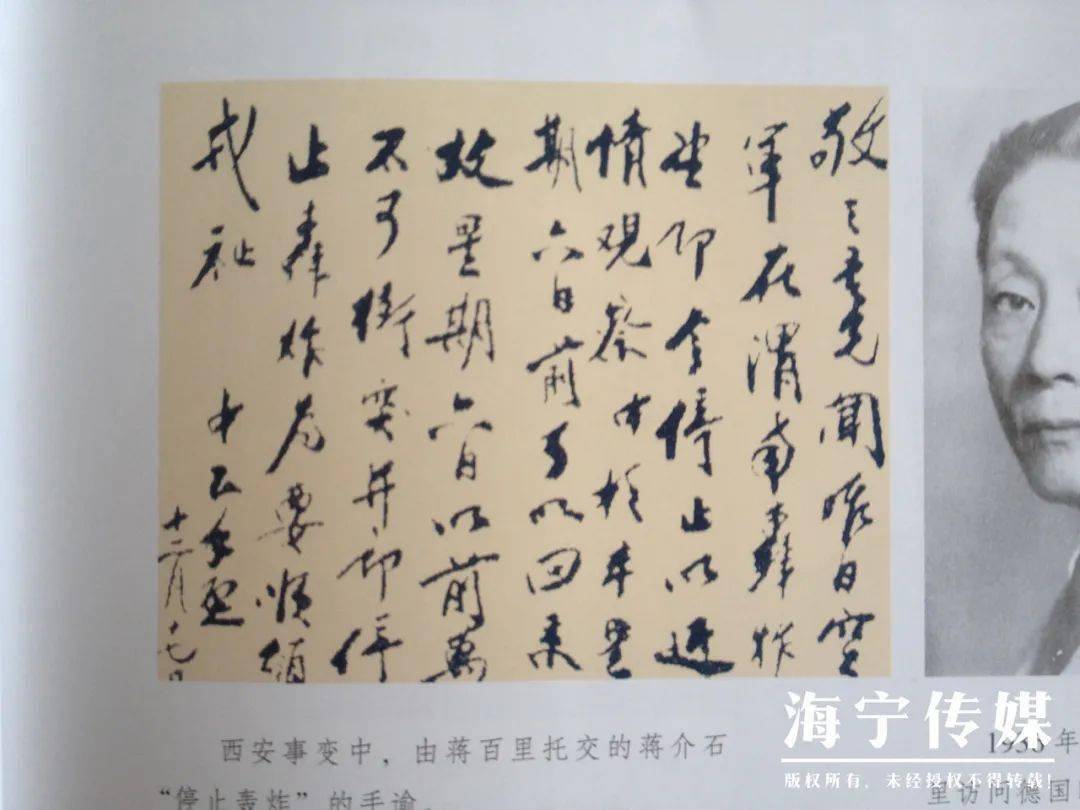 敬之吾兄闻昨日空
军在渭南轰炸
望即令停止以近
情观察中于本星
期六日前可以回京
故星期六日以前万
不可冲突并即停
止轰炸为要顺颂
戎祉 中正手启
十二月十七日
西安事变中，由蒋百里托交的蒋介石
“停止轰炸”的手谕。
193 年
里访问德国
海宁传媒
版权所有，未经授权不得转载！